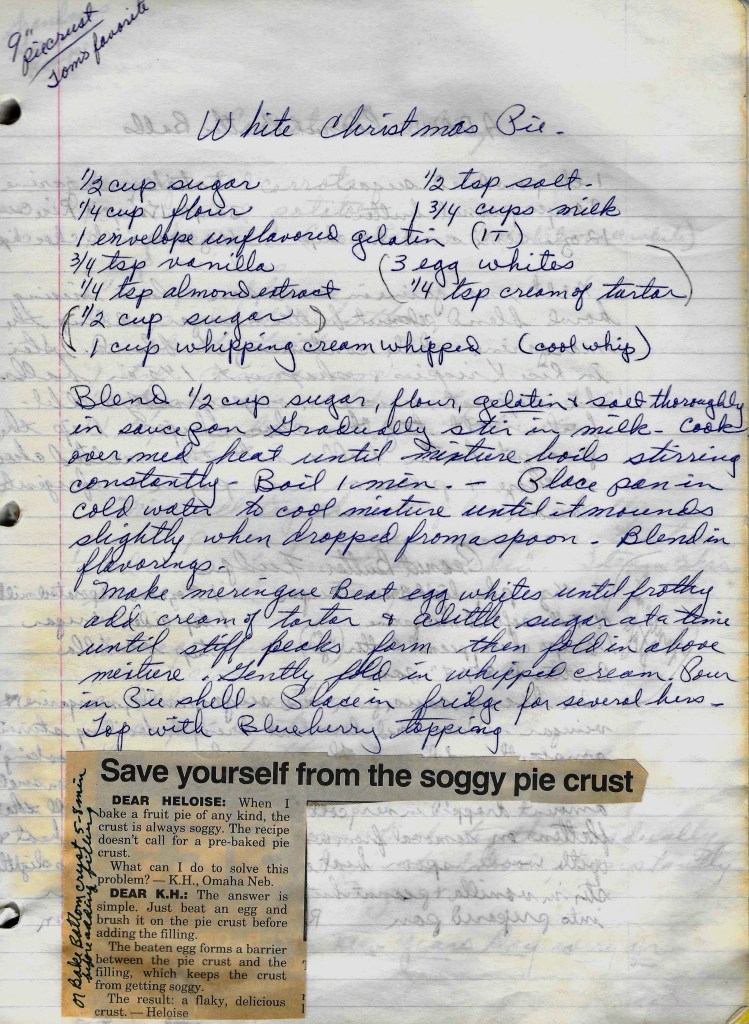 9"
piecrust
Toms favorite
White Christmas Pie.
1/2 cup sugar 1/2 tsp salt.
1/4 cup flour 1 3/4 cups milk
1 envelope unflavored gelatin (1T)
3/4 tsp vanilla (3 egg whites
1/4 tsp almond extract 1/4 tsp cream of tartar)
(1/2 cup sugar)
1 cup whipping cream whipped (cool whip)
Blend 1/2 cup sugar, flour, gelatin & salt thoroughly
in saucepan Gradually stir in milk - Cook
over med heat until mixture boils stirring
constantly - Boil 1 min. - Place pan in
cold water to cool mixture until it mounds
slightly when dropped from a spoon - Blend in
flavorings.
Make meringue Beat egg whites until frothy
add cream of tartar & a little sugar at a time
until stiff peaks form then fold in above
mixture. Gently fold in whipped cream. Pour
in Pie shell. Place in fridge for several hrs -
Top with Blueberry topping
Save yourself from the soggy pie crust
DEAR HELOISE: When I
bake a fruit pie of any kind, the
crust is always soggy. The recipe
doesn't call for a pre-baked pie
crust.
What can I do to solve this
problem? — K.H., Omaha Neb.
DEAR K.H.: The answer is
simple. Just beat an egg and
brush it on the pie crust before
adding the filling.
The beaten egg forms a barrier
between the pie crust and the
filling, which keeps the crust
from getting soggy.
The result: a flaky, delicious
crust. — Heloise
or Bake Bottom cryst 5-8 min
before adding filling